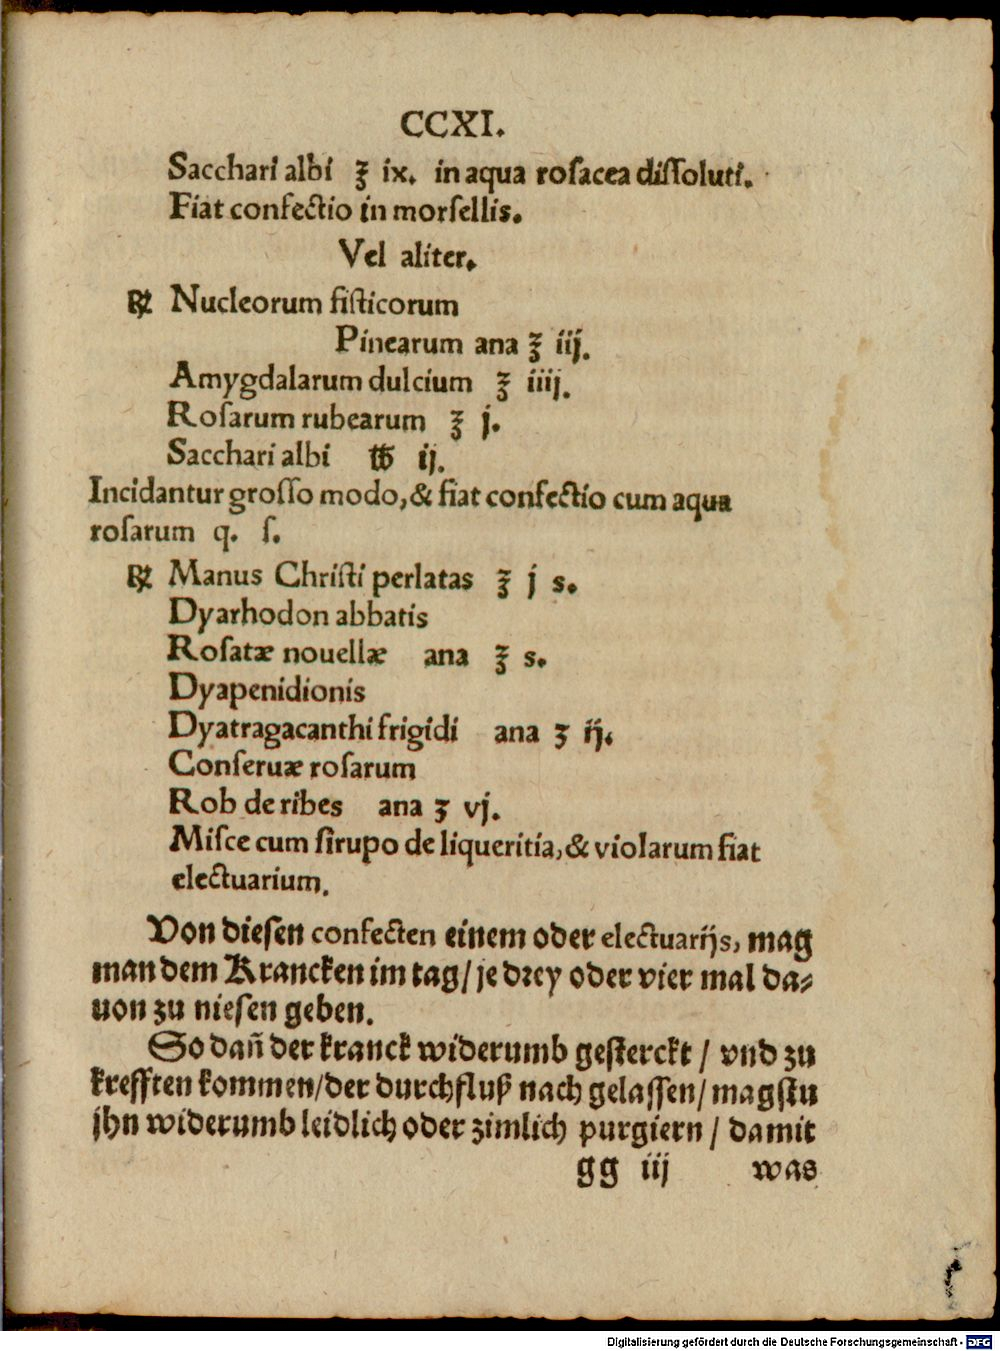 CCXI.
Sacchari albi ℥ ix. in aqua roſacea diſſoluti.
Fiat confectio in morſellis.
Vel aliter.
℞ Nucleorum fiſticorum
Pinearum ana ℥ iij.
Amygdalarum dulcium ℥ iiij.
Roſarum rubearum ℥ j.
Sacchari albi ℔ ij.
Incidantur groſſo modo, & fiat confectio cum aqua
roſarum q. ſ.
℞ Manus Chriſti perlatas ℥ j s.
Dyarhodon abbatis
Roſatæ nouellæ ana ℥ s.
Dyapenidionis
Dyatragacanthi frigidi ana ʒ ij.
Conſeruæ roſarum
Rob de ribes ana ʒ vj.
Miſce cum ſirupo de liqueritia, & violarum fiat
electuarium.
Von dieſen confecten einem oder electuarijs, mag
man dem Krancken im tag/ je drey oder vier mal da⸗
uon zu nieſen geben.
So dañ der kranck widerumb geſterckt / vnd zu
krefften kommen/der durchfluß nach gelaſſen/ magſtu
jhn widerumb leidlich oder zimlich purgiern / damit
gg iij was
Digitalisierung gefördert durch die Deutsche Forschungsgemeinschaft - DFG